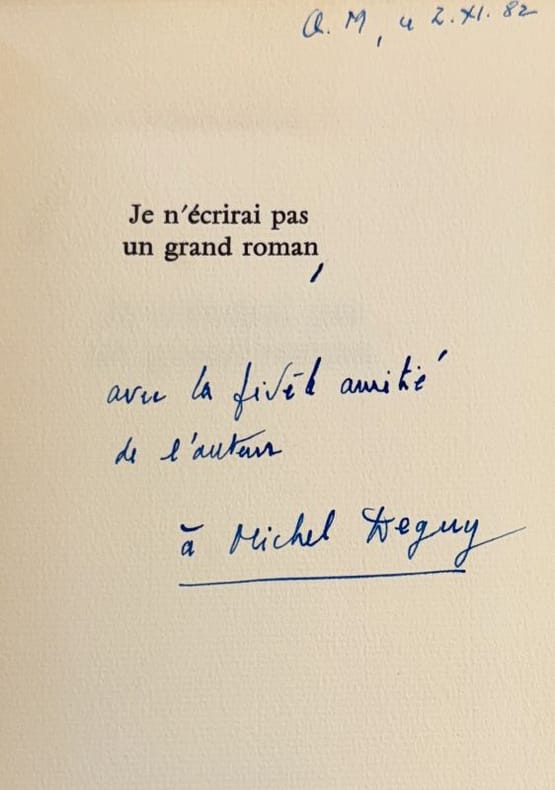 Q. M, le 2.XI.82
Je n'écrirai pas
un grand roman,
avec la fidèle amitié
de l'auteur
à Michel Deguy